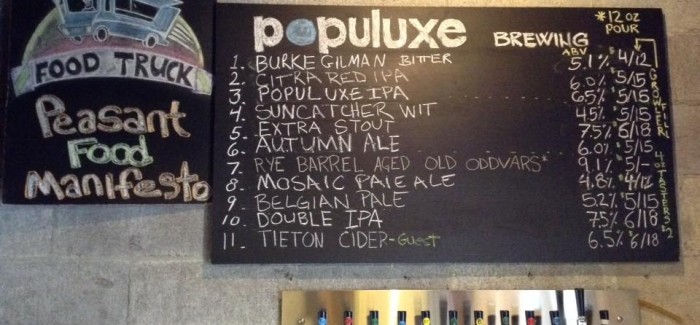 FOOD TRUCK
Peasant
Food
Manifesto
populuxe BREWING
*12 oz
POUR
ABV
1. BURKE GILMAN BITTER 5.1% $4/12
2. CITRA RED IPA 6.0% $5/15
3. POPULUXE IPA 6.5% $5/15
4. SUNCATCHER WIT 4.5% $5/15
5. EXTRA STOUT 7.5% $6/18
6. AUTUMN ALE 6.0% $5/15
7. RYE BARREL AGED OLD ODDVARS* 9.1% $5/-
8. MOSAIC PALE ALE 4.8% $4/12
9. BELGIAN PALE 5.2% $5/15
10. DOUBLE IPA 7.5% 6/18
11. TIETON CIDER-Guest 6.5% $6/18
GROWLER FILL
4oz TASTERS $2